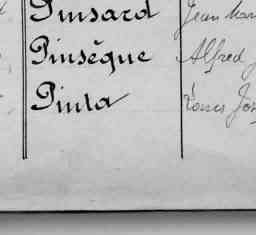 Pinsard Jean Mar
Pinsèque Alfred J
Pinta Louis Jos